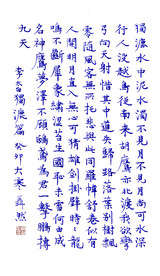 獨漉水中泥水濁不見月不見月尚可水深
行人没越鳥從南来胡鷹亦北渡我欲彎
弓向天射惜其中道失歸路落葉別樹飄
零随風客無所托悲與此同羅幃舒卷似有
人開明月直入無心可猜雄劍掛壁時時龍
鳴不斷犀象繡澀苔生國恥未雪何由成
名神鷹夢澤不顧鴟鳶為君一擊鵬搏
九天
李白獨漉篇 癸卯大寒